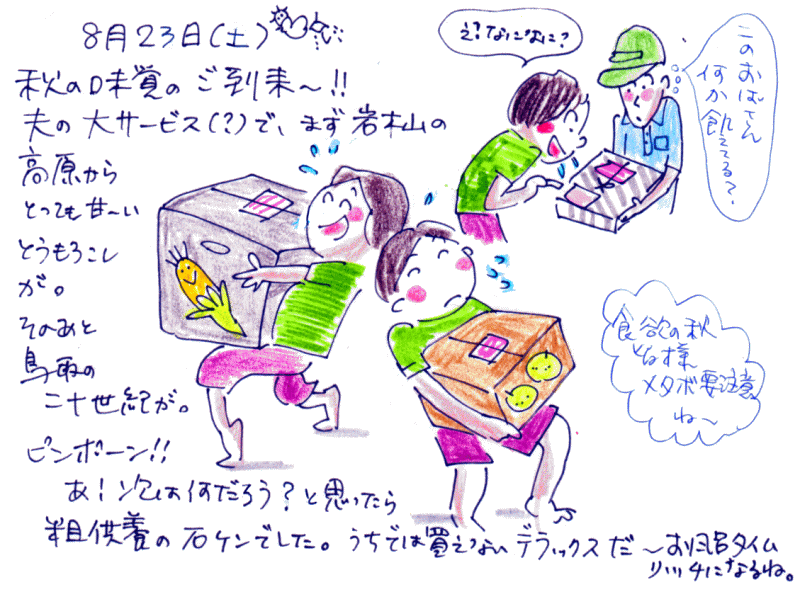 8月23日(土)
秋の味覚のご到来〜!!
夫の大サービス(?)で、まず岩木山の
高原から
とっても甘〜い
とうもろこし
が。
そのあと
鳥取の
二十世紀が。
ピンポーン!!
あ!次は何だろう?と思ったら
粗供養の石ケンでした。うちでは買えないデラックスだ〜お風呂タイム
リッチになるね。
え?なになに?
このおばさん
何か飢えてる?
食欲の秋
皆様
メタボ要注意
ね〜